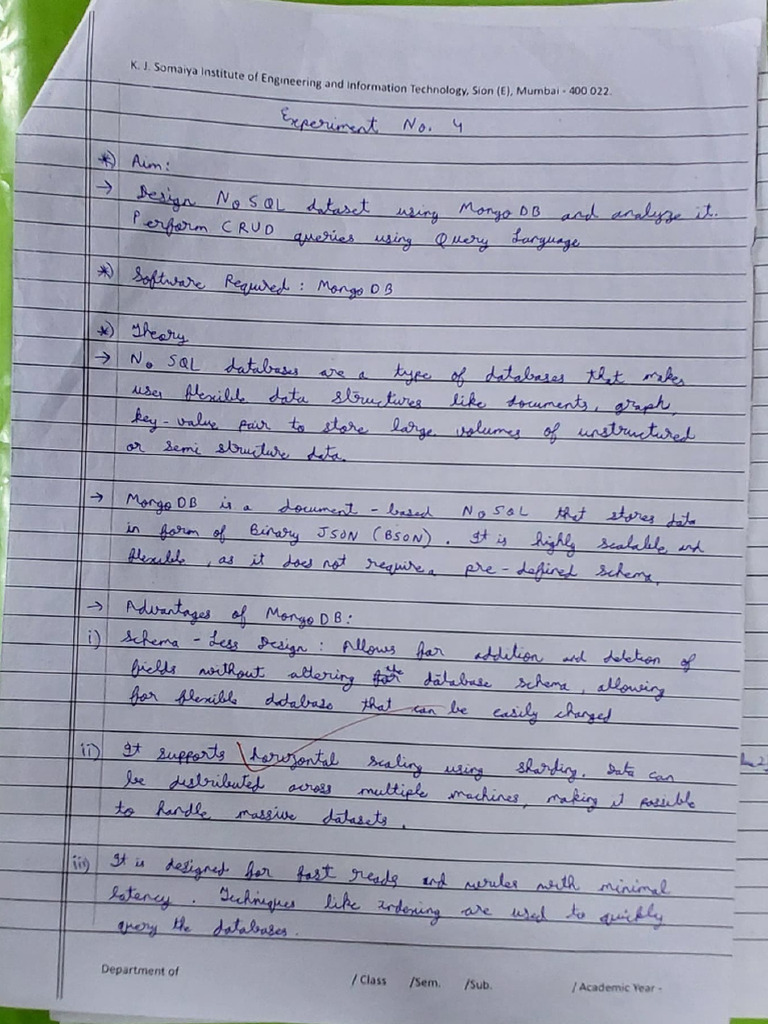 K. J. Somaiya Institute of Engineering and Information Technology, Sion (E), Mumbai - 400 022.
Experiment No. 4
*) Aim:
→ Design NoSQL dataset using MongoDB and analyze it.
Perform CRUD queries using Query Language
*) Software Required : MongoDB
*) Theory
→ No SQL databases are a type of databases that makes
uses flexible data structures like documents, graph,
key-value pair to store large volumes of unstructured
or semi structure data.
→ MongoDB is a document - based NoSQL that stores data
in form of Binary JSON (BSON). It is highly scalable and
flexible, as it does not require a pre-defined schema.
→ Advantages of MongoDB:
i) Schema - Less Design : Allows for addition and deletion of
fields without altering the database schema, allowing
for flexible database that can be easily changed
ii) It supports horizontal scaling using sharding. Data can
be distributed across multiple machines, making it possible
to handle massive datasets.
iii) It is designed for fast reads and writes with minimal
latency. Techniques like indexing are used to quickly
query the databases.
Department of / Class / Sem. / Sub. / Academic Year -